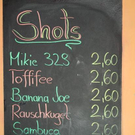 Shots
Mikie 328 2,60
Toffifee 2,60
Banana Joe 2,60
Rauschkugel 2,60
Sambuca 2,60